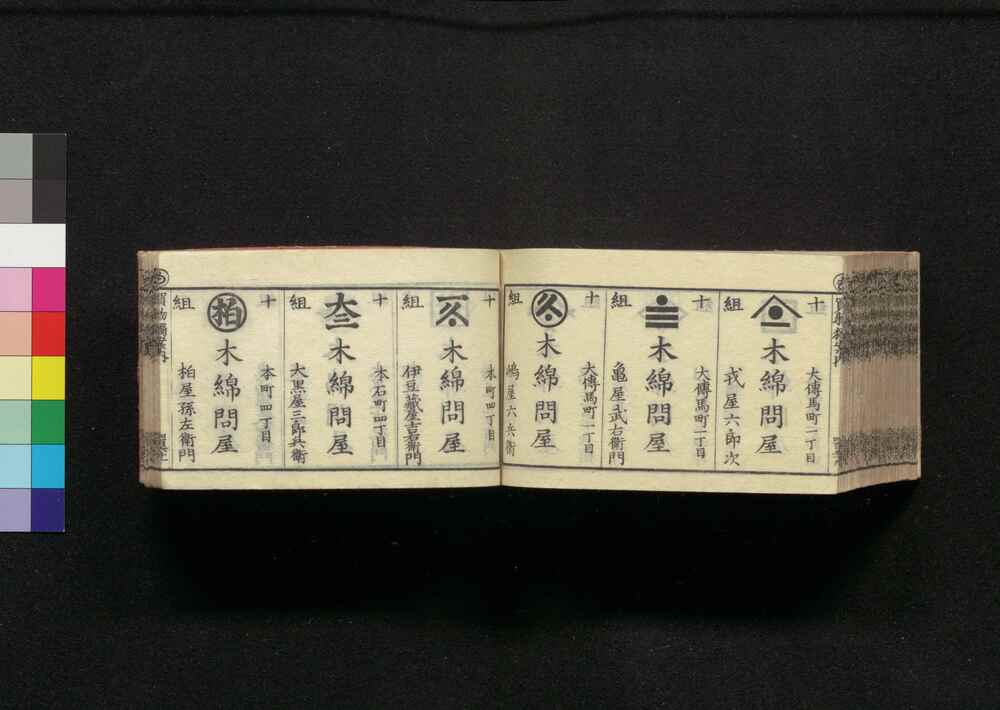 十組
大傳馬町一丁目
木綿問屋
戎屋六郎次
十組
大傳馬町一丁目
木綿問屋
亀屋武右衛門
十組
大傳馬町一丁目
木綿問屋
嶋屋六兵衛
十組
本町四丁目
木綿問屋
伊豆蔵屋吉右衛門
十組
本石町四丁目
木綿問屋
大黒屋三郎兵衛
十組
本町四丁目
柏
木綿問屋
柏屋孫左衛門